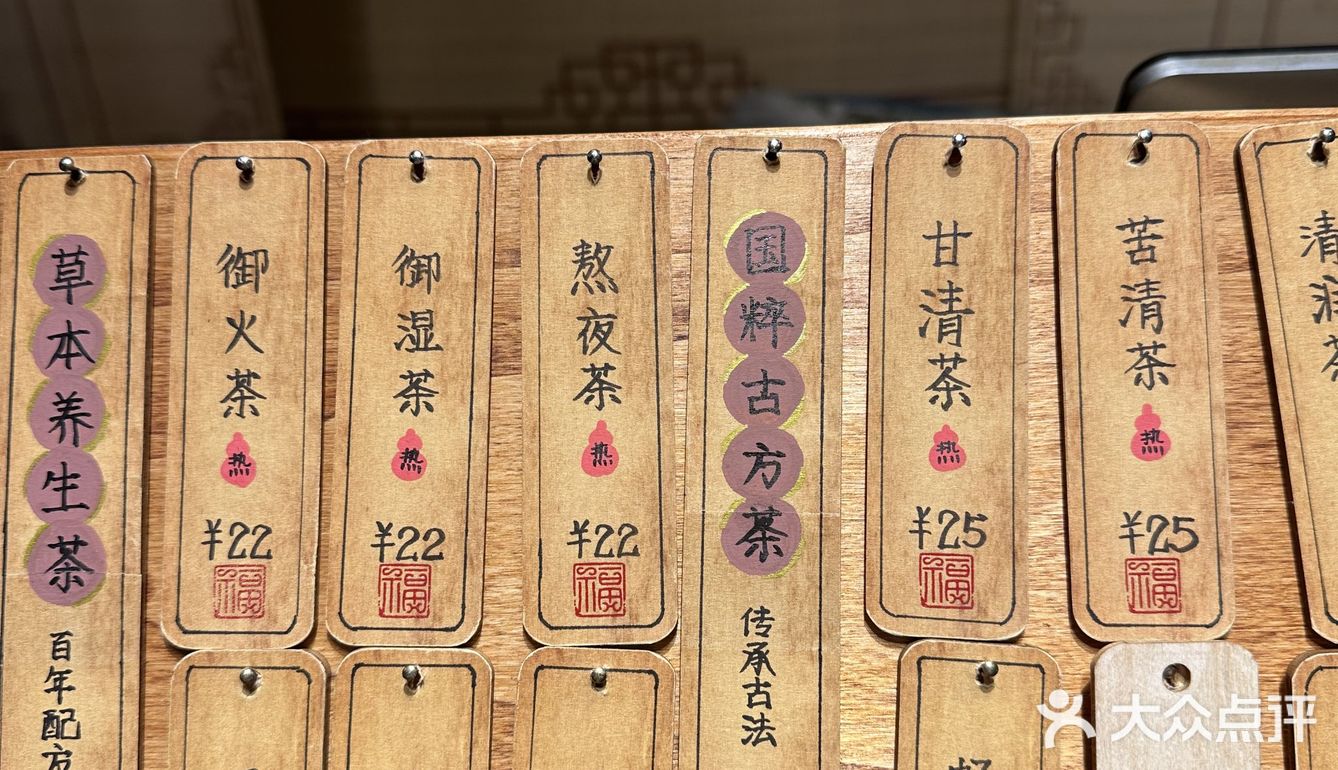 草本养生茶
百年配方
御火茶
热
¥22
福
御湿茶
热
¥22
福
熬夜茶
热
¥22
福
国粹古方茶
传承古法
甘清茶
热
¥25
福
苦清茶
热
¥25
福
清润茶
大众点评